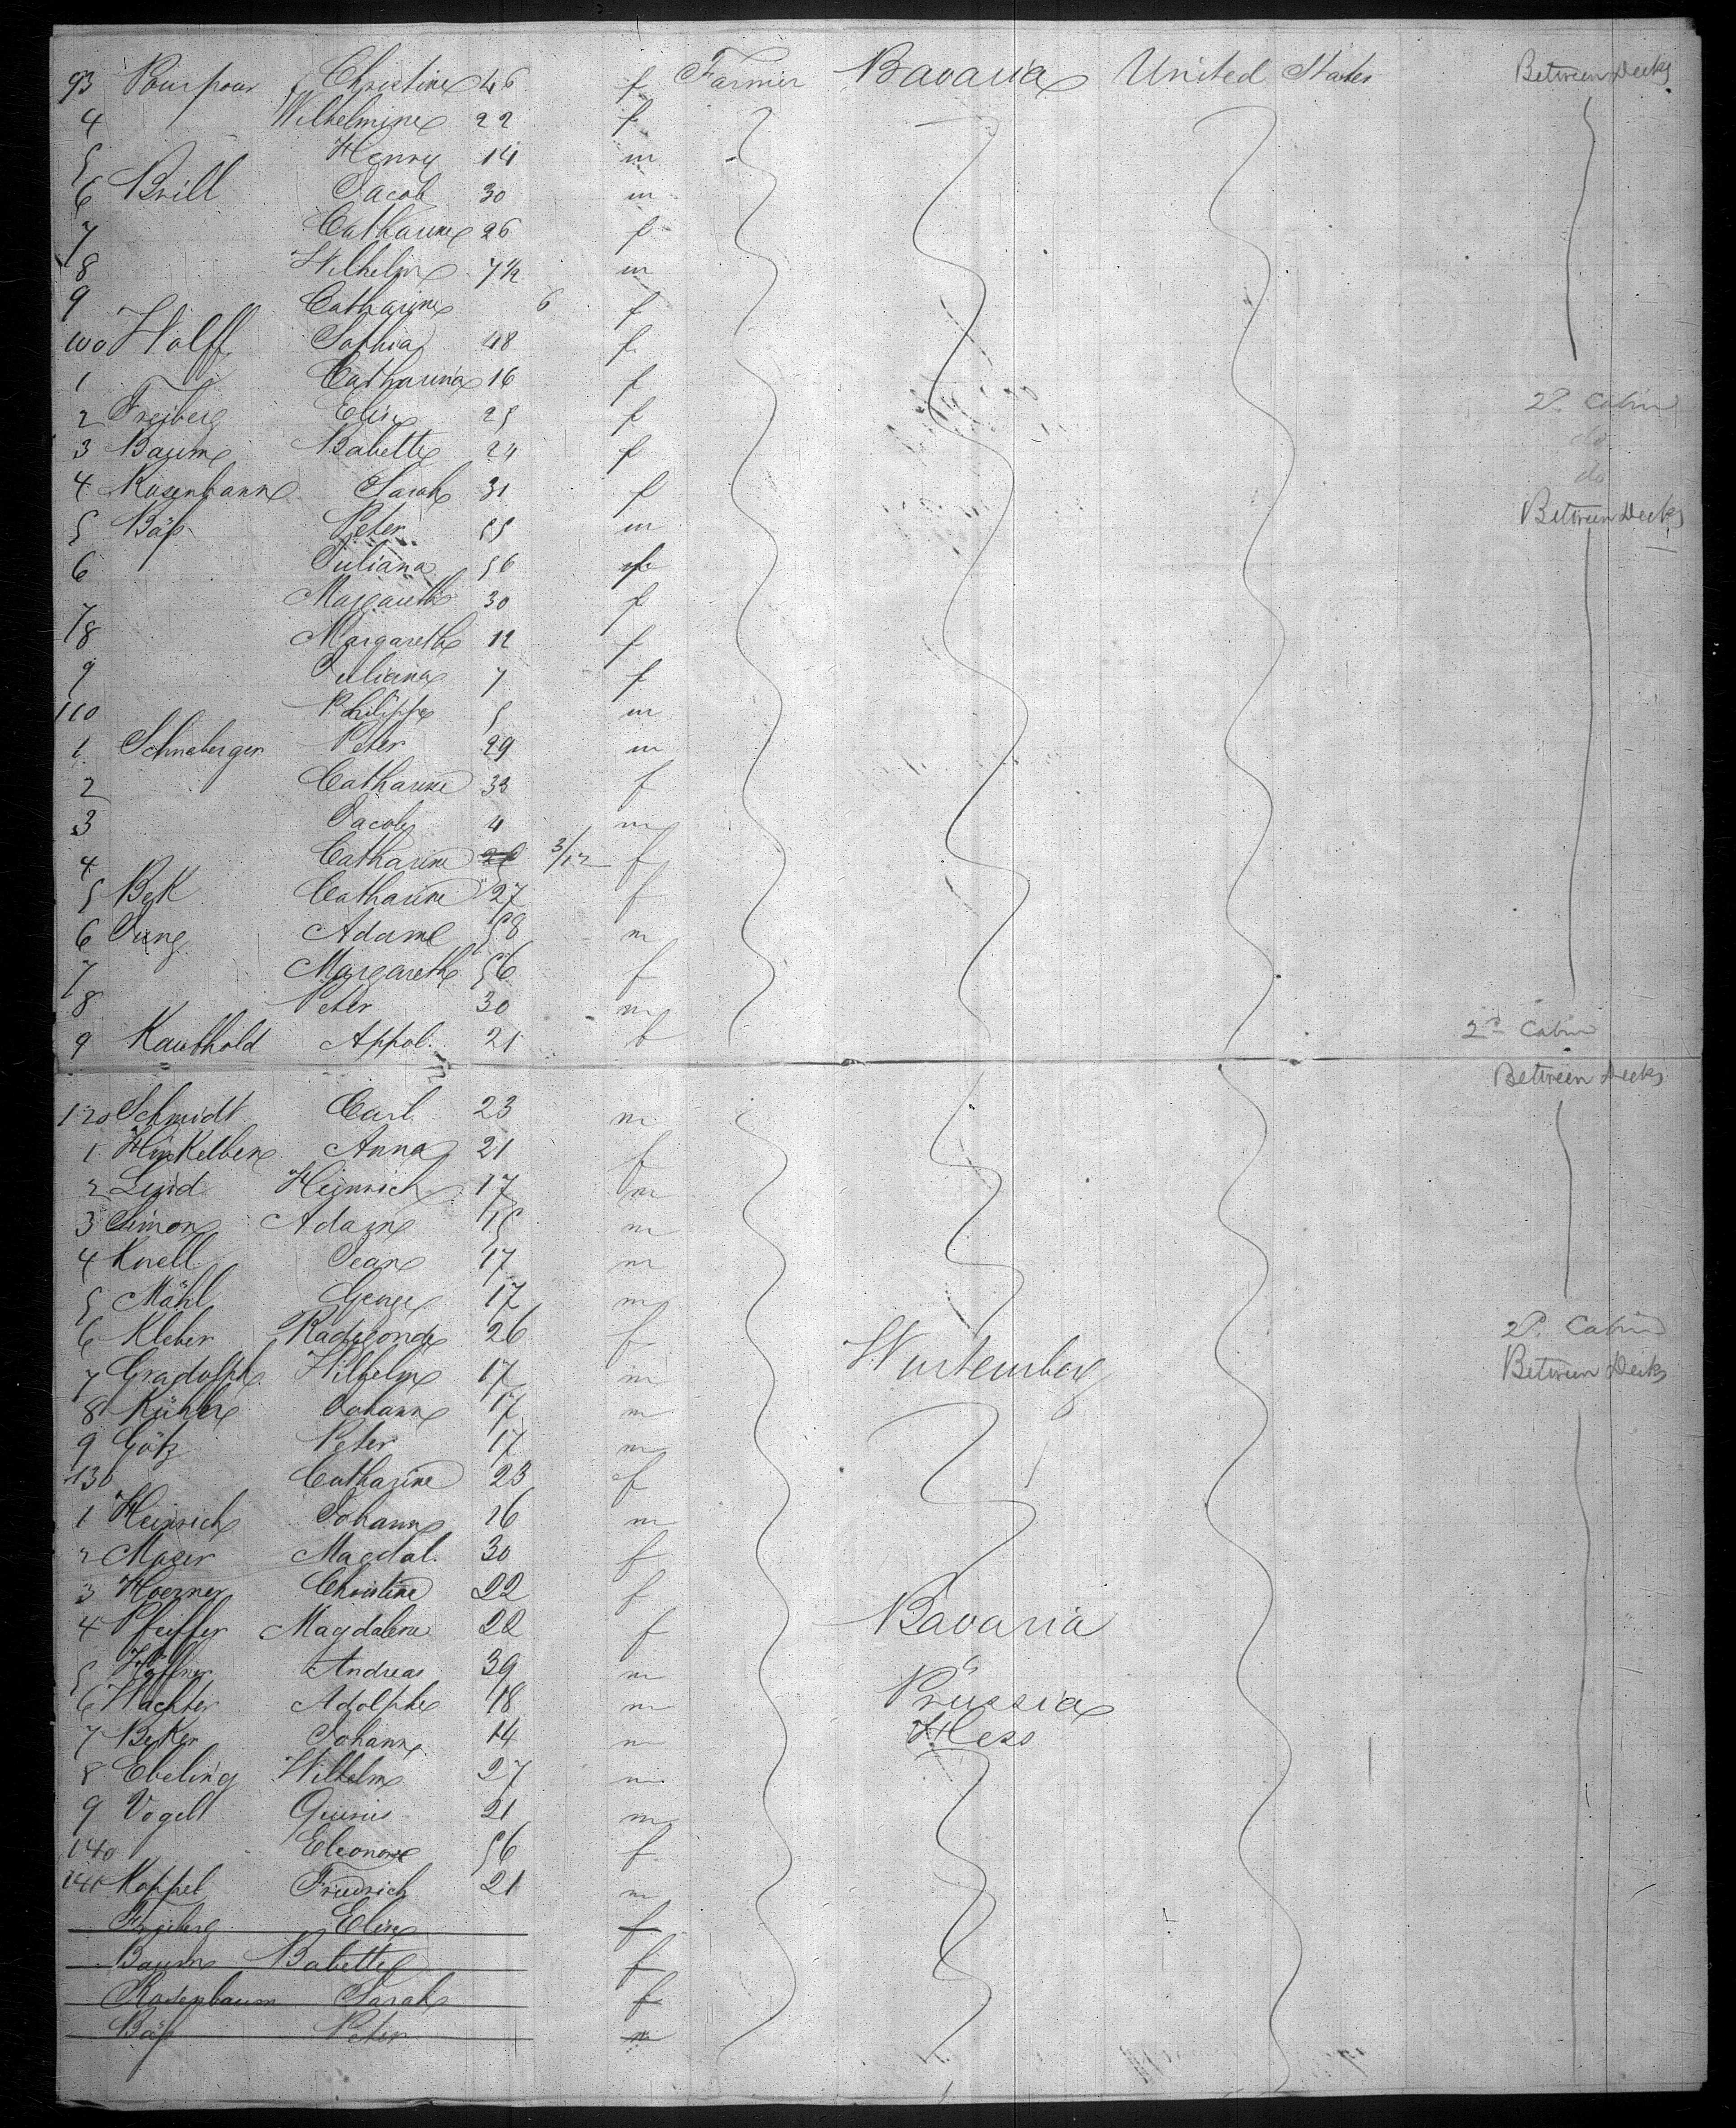 93 Pourpour Christine 46 f Farmer Bavaria United States Between Decks
4 Wilhelmine 22 f
5 Henry 14 m
6 Brill Jacob 30 m
7 Catharine 26 f
8 Wilhelm 7½ m
9 Catharine 6 f
100 Wolff Sophia 48 f
1 Catharina 16 f
2 Freiberg Elin 25 f 2d. Cabin
3 Baum Babette 24 f do
4 Rosenbaum Sarah 31 f do
5 Bäß Peter 55 m Between Decks
6 Juliana 56 f
7 Margareth 30 f
8 Margareth 12 f
9 Juliana 7 f
110 Philippe 5 m
1 Schneberger Peter 29 m
2 Catharine 33 f
3 Jacob 4 m
4 Catharine 3/12 f
5 Bek Catharine 27 f
6 Jung Adam 58 m
7 Margareth 56 f
8 Peter 30 m
9 Kauthold Appol. 21 f 2d Cabin
Between Decks
120 Schmidt Carl 23 m
1 Hinkelbein Anna 21 f
2 Leud Heinrich 17 m
3 Simon Adam 15 m
4 Knell Jean 17 m
5 Mähl George 17 m
6 Kleber Radegonde 26 f 2d. Cabin
7 Gradolph Wilhelm 17 m Wurtemberg Between Decks
8 Kühle Johann 17 m
9 Götz Peter 17 m
130 Catharine 23 f
1 Heinrich Johann 26 m
2 Moser Magdal. 30 f
3 Hoerner Christine 22 f
4 Pfeiffer Magdalena 22 f Bavaria
5 Andreas 39 m "
6 Wachter Adolphe 18 m Prussia
7 Beker Johann 14 m Hess
8 Ebeling Wilhelm 27 m
9 Vogelt 21 m
140 Eleonore 56 f
141 Koppel Friedrich 21 m
Freiberg Elin f
Baum Babette f
Rosenbaum Sarah f
Bäß Peter m